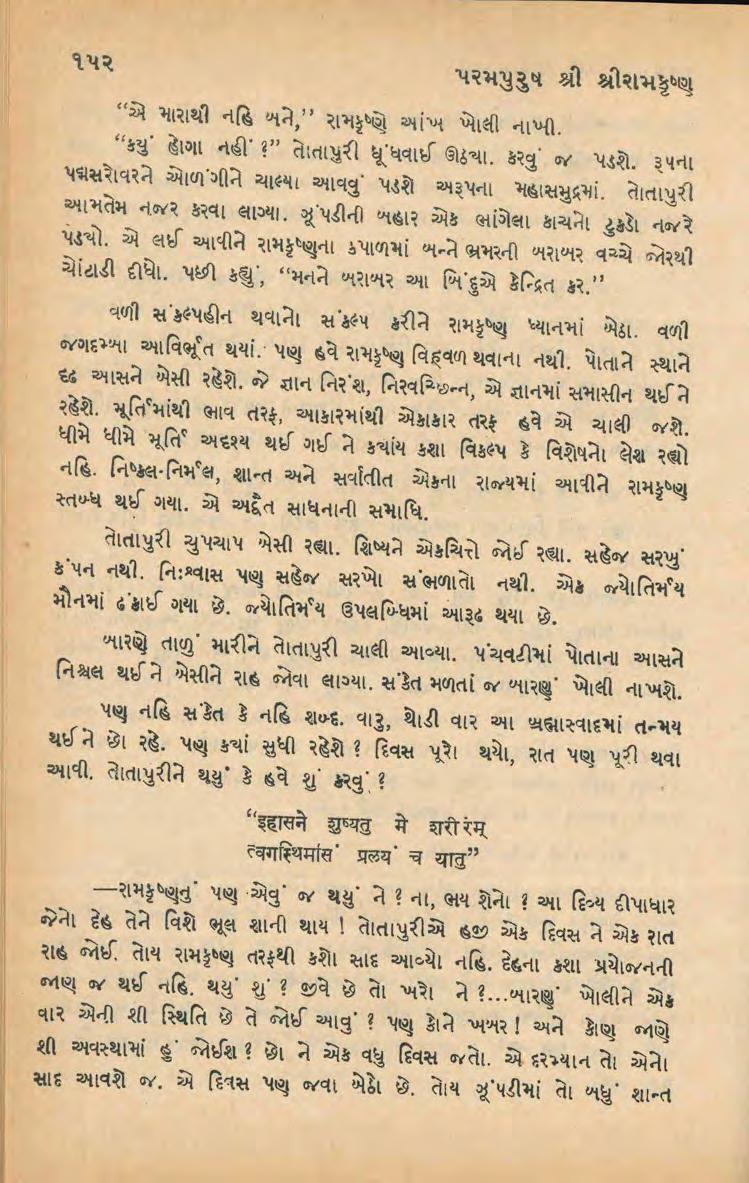 ૧૫૨
પરમપુરુષ શ્રી શ્રીરામકૃષ્ણ
“એ મારાથી નહિ બને,” રામકૃષ્ણે આંખ ખોલી નાખી.
“કયું હોગા નહીં ?” તોતાપુરી ધૂંધવાઈ ઊઠ્યા. કરવું જ પડશે. રૂપના
પદ્મસરોવરને ઓળંગીને ચાલ્યા આવવું પડશે અરૂપના મહાસમુદ્રમાં. તોતાપુરી
આમતેમ નજર કરવા લાગ્યા. ઝૂંપડીની બહાર એક ભાંગેલા કાચનો ટુકડો નજરે
પડ્યો. એ લઈ આવીને રામકૃષ્ણના કપાળમાં બન્ને ભ્રમરની બરાબર વચ્ચે જોરથી
ચોંટાડી દીધો. પછી કહ્યું, “મનને બરાબર આ બિંદુએ કેન્દ્રિત કર.”
વળી સંકલ્પહીન થવાનો સંકલ્પ કરીને રામકૃષ્ણ ધ્યાનમાં બેઠા. વળી
જગદમ્બા આવિર્ભૂત થયાં. પણ હવે રામકૃષ્ણ વિહ્વળ થવાના નથી. પોતાને સ્થાને
દૃઢ આસને બેસી રહેશે. જે જ્ઞાન નિરંશ, નિરવચ્છિન્ન, એ જ્ઞાનમાં સમાસીન થઈને
રહેશે. મૂર્તિમાંથી ભાવ તરફ, આકારમાંથી એકાકાર તરફ હવે એ ચાલી જશે.
ધીમે ધીમે મૂર્તિ અદૃશ્ય થઈ ગઈ ને ક્યાંય કશા વિકલ્પ કે વિશેષનો લેશ રહ્યો
નહિ. નિષ્કલ-નિર્મલ, શાન્ત અને સર્વાતીત એકના રાજ્યમાં આવીને રામકૃષ્ણ
સ્તબ્ધ થઈ ગયા. એ અદ્વૈત સાધનાની સમાધિ.
તોતાપુરી ચુપચાપ બેસી રહ્યા. શિષ્યને એકચિત્તે જોઈ રહ્યા. સહેજ સરખું
કંપન નથી. નિઃશ્વાસ પણ સહેજ સરખો સંભળાતો નથી. એક જ્યોતિર્મય
મૌનમાં ઢંકાઈ ગયા છે. જ્યોતિર્મય ઉપલબ્ધિમાં આરૂઢ થયા છે.
બારણે તાળું મારીને તોતાપુરી ચાલી આવ્યા. પંચવટીમાં પોતાના આસને
નિશ્ચલ થઈને બેસીને રાહ જોવા લાગ્યા. સંકેત મળતાં જ બારણું ખોલી નાખશે.
પણ નહિ સંકેત કે નહિ શબ્દ. વારુ, થોડી વાર આ બ્રહ્માસ્વાદમાં તન્મય
થઈને છો રહે. પણ ક્યાં સુધી રહેશે ? દિવસ પૂરો થયો, રાત પણ પૂરી થવા
આવી. તોતાપુરીને થયું કે હવે શું કરવું ?
“इहासने शुष्यतु मे शरीरंम्
त्वगस्थिमांसं प्रलयं च यातु”
—રામકૃષ્ણનું પણ એવું જ થયું ને ? ના, ભય શેનો ? આ દિવ્ય દીપાધાર
જેનો દેહ તેને વિશે ભૂલ શાની થાય ! તોતાપુરીએ હજી એક દિવસ ને એક રાત
રાહ જોઈ. તોય રામકૃષ્ણ તરફથી કશો સાદ આવ્યો નહિ. દેહના કશા પ્રયોજનની
જાણ જ થઈ નહિ. થયું શું ? જીવે છે તો ખરો ને ?...બારણું ખોલીને એક
વાર એની શી સ્થિતિ છે તે જોઈ આવું ? પણ કોને ખબર ! અને કોણ જાણે
શી અવસ્થામાં હું જોઈશ ? છો ને એક વધુ દિવસ જતો. એ દરમ્યાન તો એનો
સાદ આવશે જ. એ દિવસ પણ જવા બેઠો છે. તોય ઝૂંપડીમાં તો બધું શાન્ત